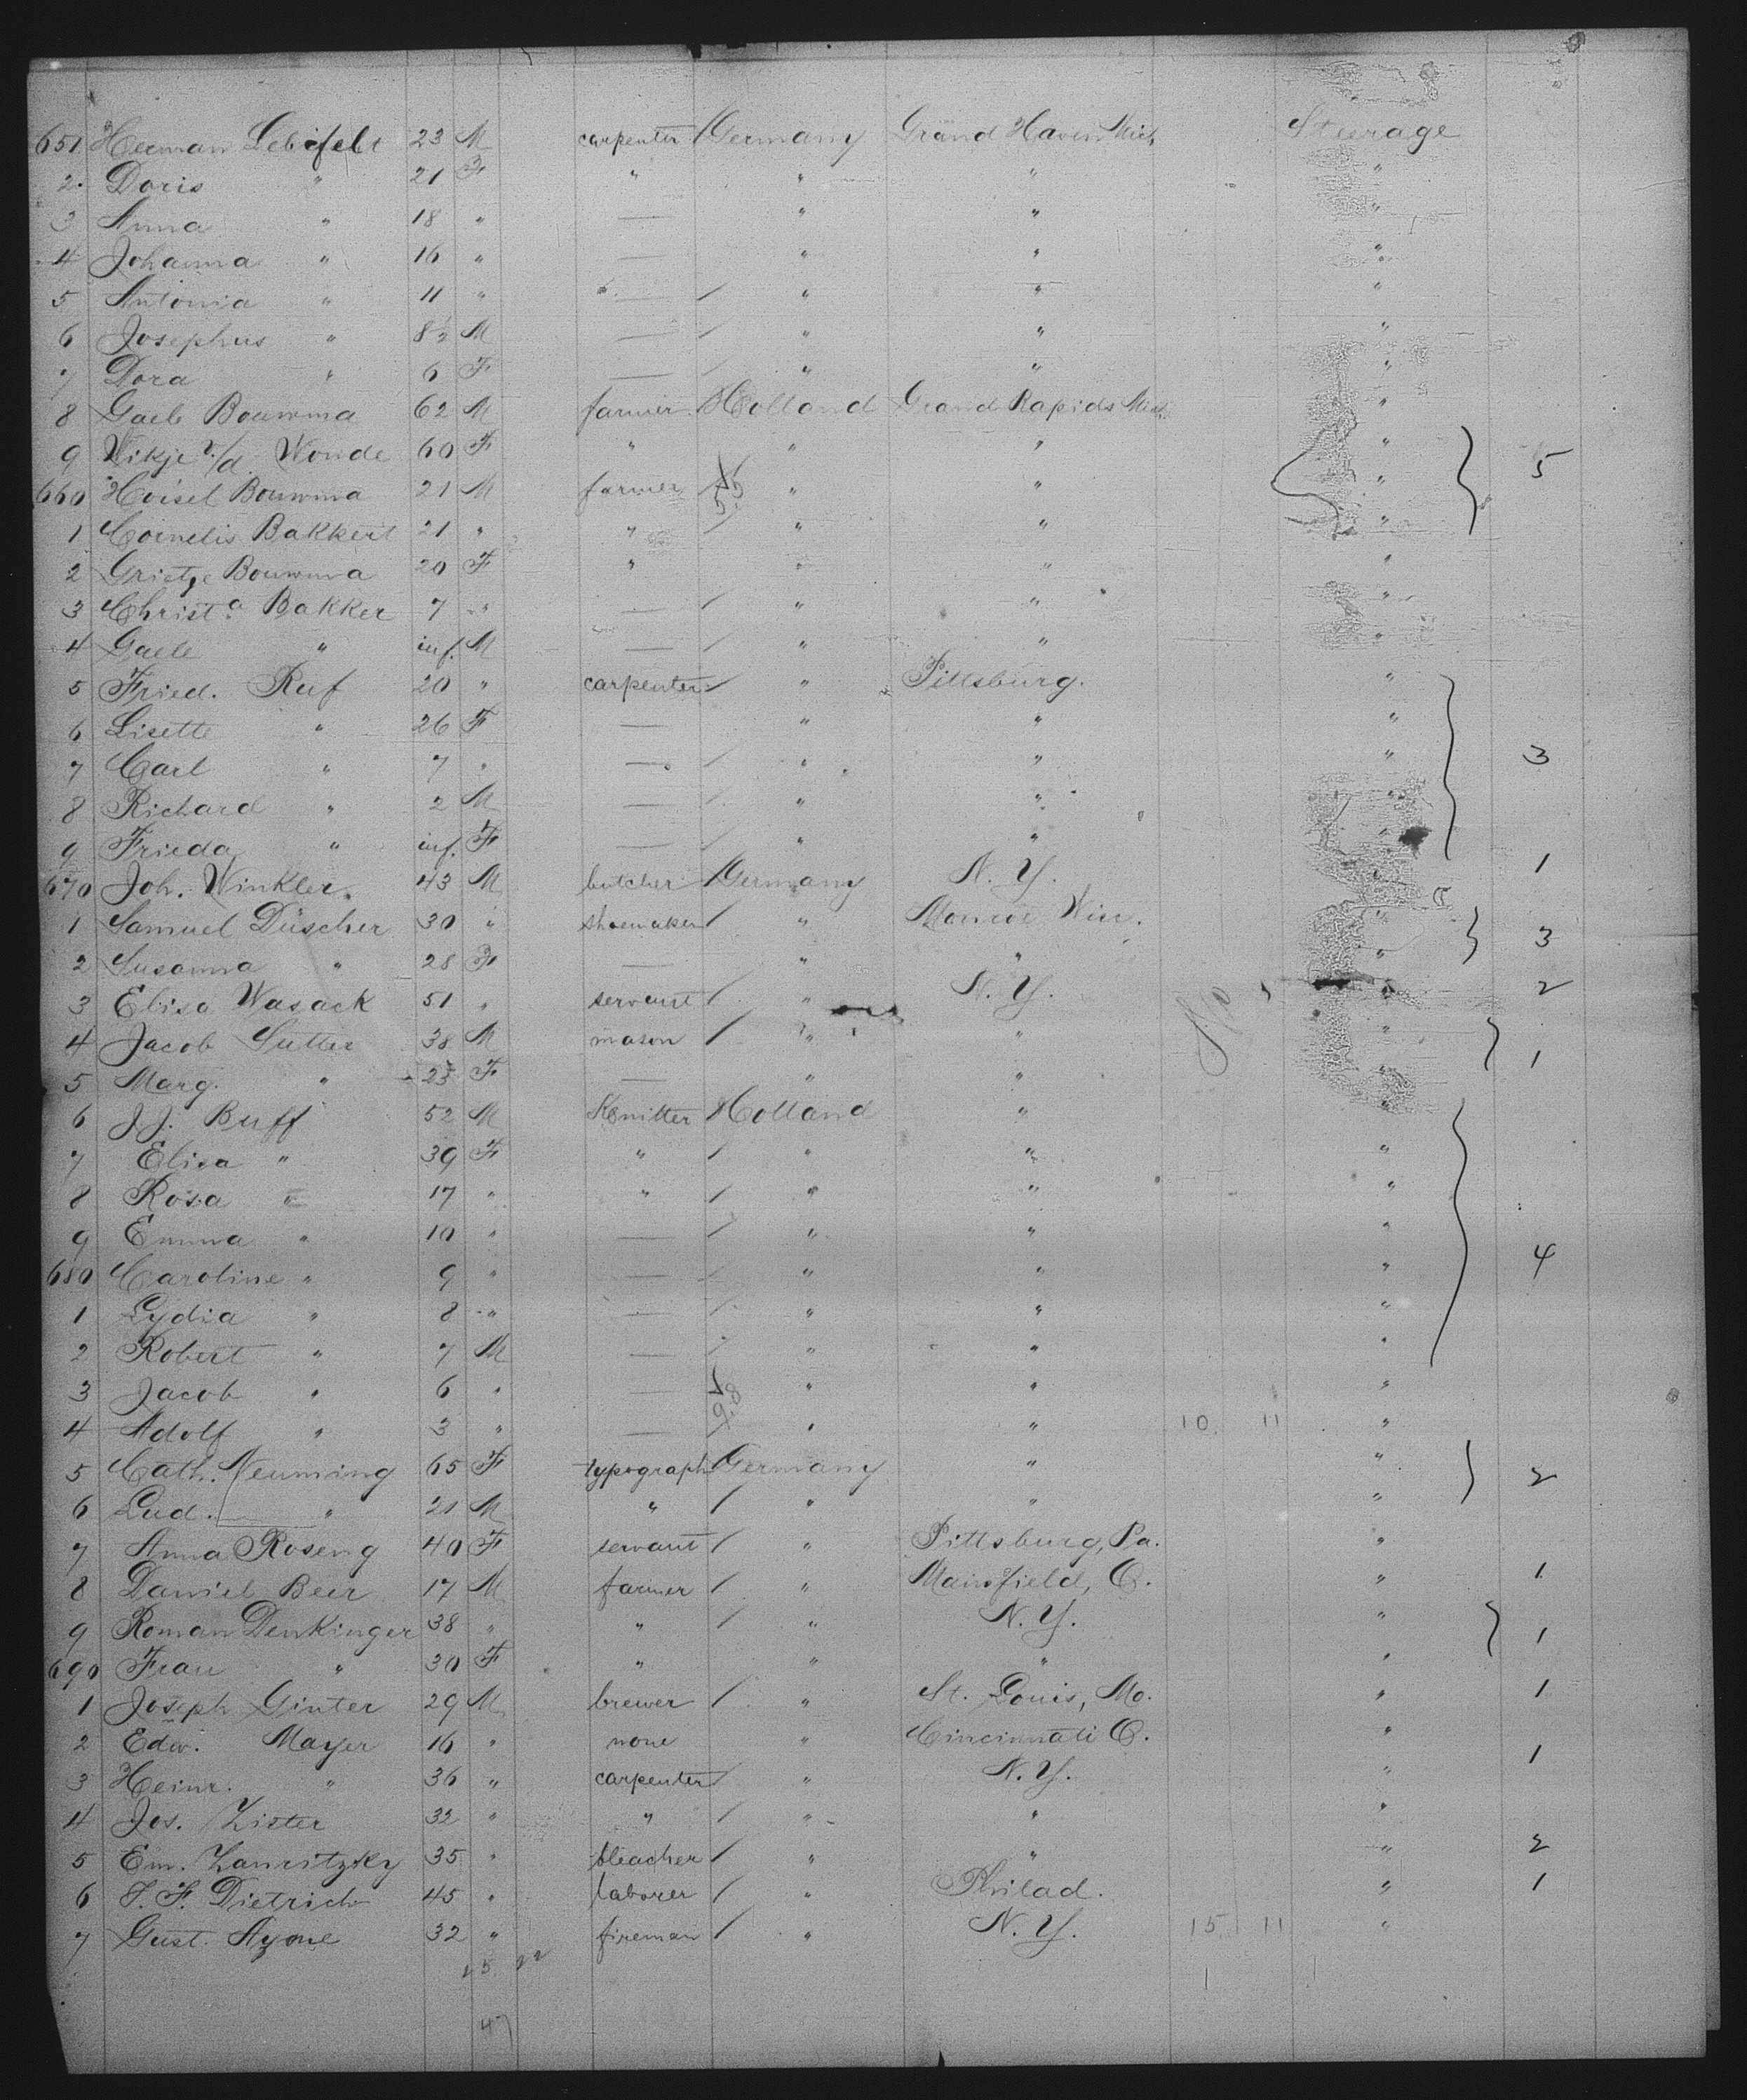 651 Herman Lebifelt 23 M carpenter Germany Grand Haven Mich. Steerage
2. Doris " 21 F " " " "
3 Anna " 18 " — " " "
4 Johanna " 16 " — " " "
5 Antonia " 11 " — / " " "
6 Josephus " 8½ M — / " " "
7 Dora " 6 F — / " " "
8 Gaele Bouwma 62 M farmer Holland Grand Rapids Mich. "
9 Wikje v/d. Wonde 60 F " " " " 5
660 Bouwma 21 M farmer " " "
1 Cornelis Bakkert 21 " " / " " "
2 Grietje Bouwma 20 F " " " "
3 Christa. Bakker 7 " — / " " "
4 Gaele " inf. M — / " " "
5 Fried. Ruf 20 " carpenter / " Pittsburg. "
6 Lisette " 26 F — " " "
7 Carl " 7 " — / " " " 3
8 Richard " 2 M — / " " "
9 Frieda " inf. F — / " " "
670 Joh. Winkler. 43 M butcher Germany N. Y. " 1
1 Samuel Düscher 30 " shoemaker / " Monroe Wisc. " 3
2 Susanna " 28 F — " " "
3 Elisa Wasack 51 " servant / " N. Y. " 2
4 Jacob Sutter 38 M mason / " " "
5 Marg. " 25 F — " " " 1
6 J. J. Buff 52 M Knitter Holland " "
7 Elisa " 39 F " / " " "
8 Rosa " 17 " " / " " "
9 Emma " 10 " — / " " "
680 Caroline " 9 " — / " " " 4
1 Lydia " 8 " — / " " "
2 Robert " 7 M — / " " "
3 Jacob " 6 " — " " "
4 Adolf " 3 " — / " " 10 11 "
5 Cath. Neuming 65 F typograph Germany " " 2
6 Lud. " 21 M " / " " "
7 Anna Roseng 40 F servant / " Pittsburg, Pa. "
8 Daniel Beer 17 M farmer / " Mansfield, O. " 1
9 Roman Denkinger 38 " " / " N. Y. " 1
690 Frau " 30 F " " " "
1 Joseph Ginter 29 M brewer / " St. Louis, Mo. " 1
2 Edw. Mayer 16 " none " Cincinnati O. "
3 Heinr. " 36 " carpenter / " N. Y. " 1
4 Jos. Zister 32 " " / " " "
5 Em. Zanritzky 35 " bleacher / " " " 2
6 F. F. Dietrich 45 " laborer / " Philad. " 1
7 Gust. Ayone 32 " fireman / " N. Y. 15 11 "
25 22
47